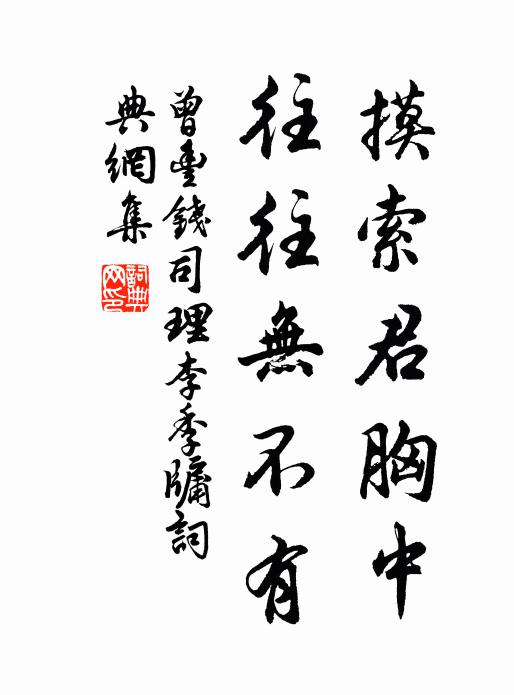 摸索君胸中
往往無不有
曾豐錢司理李季牖詞
典網集
詞典网印